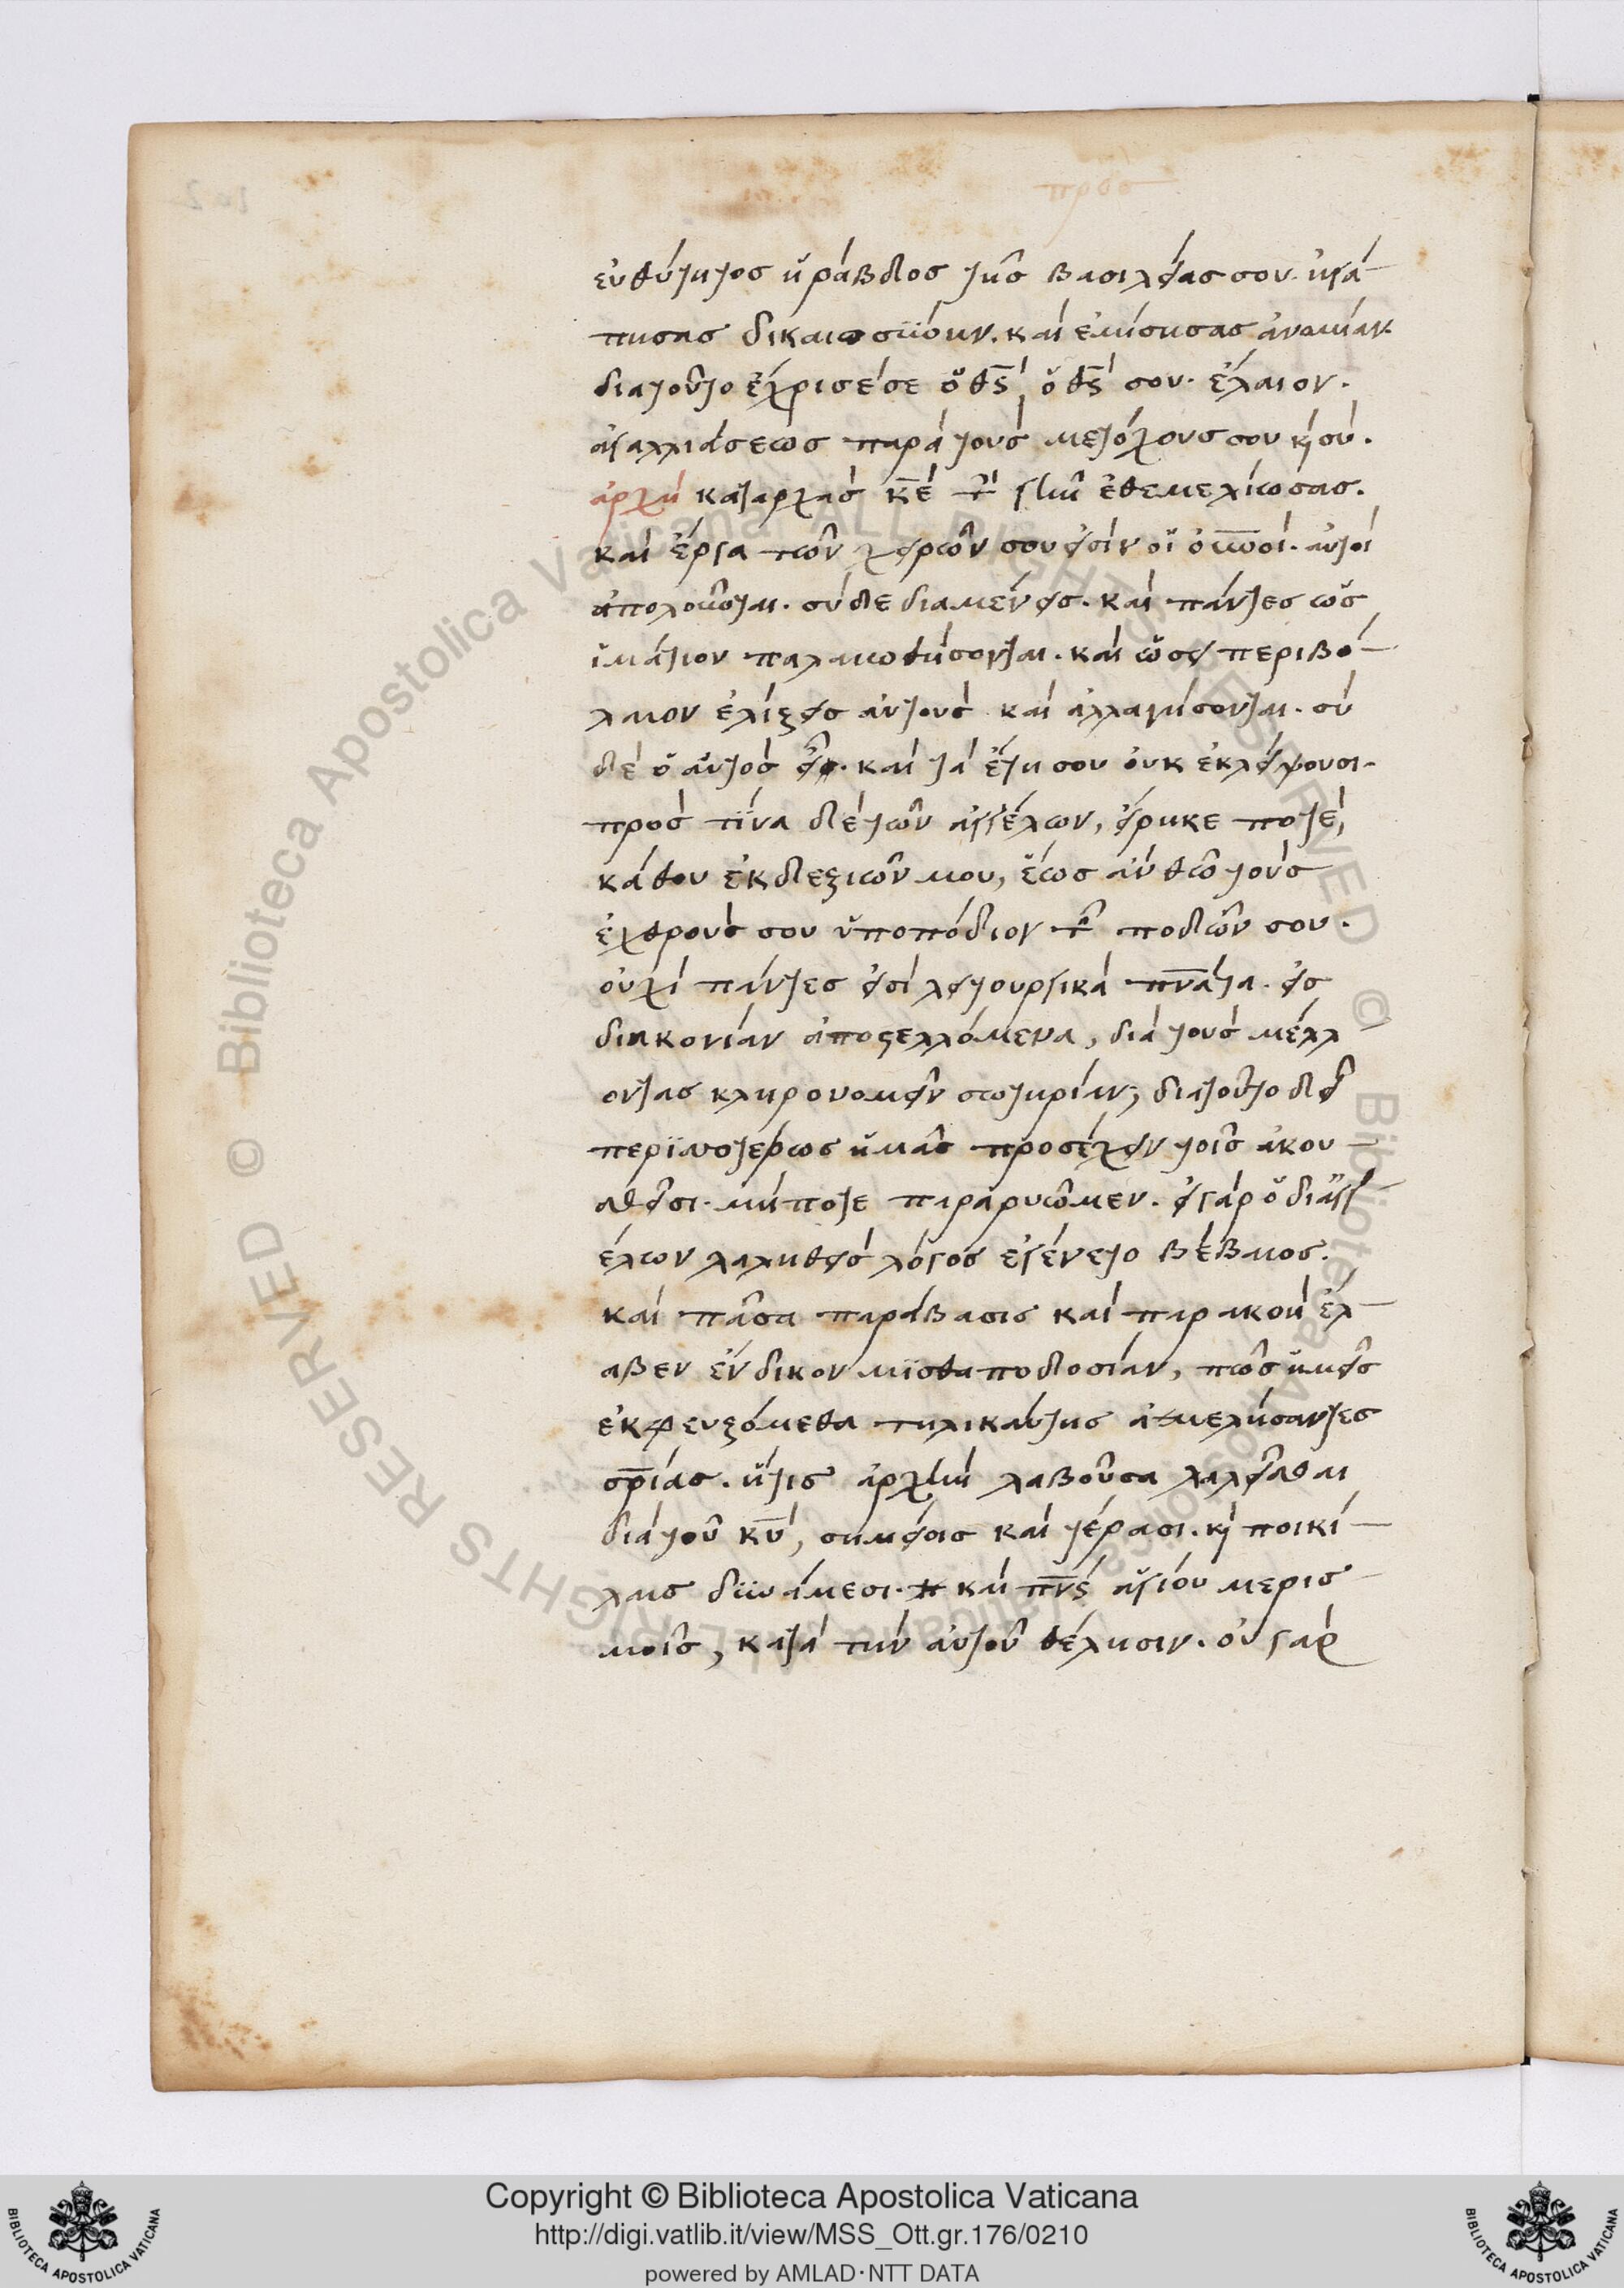 εὐθύτητος ἡ ράβδος τῆς βασιλείας σου. ἠγά-
πησας δικαιοσύνην. καὶ ἐμίσησας ἀνομίαν.
διατοῦτο ἔχρισέ σε ὁ θς̅ ὁ θς̅ σου. ἔλαιον.
ἀγαλλιάσεως παρὰ τοὺς μετόχους σου κ̀ σὺ.
ἀρχὴ καταρχὰς κε̅ τ̀ γῆν ἐθεμελίωσας.
καὶ ἔργα τῶν χειρῶν σου εἰσὶν οἱ οὐ̅νοι. αὐτοὶ
ἀπολοῦνται. σὺ δε διαμένεις. καὶ πάντες ὡς
ἱμάτιον παλαιωθήσονται. καὶ ὡσεὶ περιβό-
λαιον ἑλίξεις αὐτοὺς καὶ ἀλλαγήσονται. σὺ
δὲ ὁ αὐτὸς εἶ. καὶ τὰ ἔτη σου οὐκ ἐκλείψουσι.
πρὸς τίνα δὲ τῶν ἀγγέλων, εἴρηκε ποτὲ,
κάθου ἐκδεξιῶν μου, ἕως ἂν θῶ τοὺς
ἐχθρούς σου ὑποπόδιον τ̑ ποδῶν σου.
οὐχὶ πάντες εἰσὶ λειτουργικὰ πν̅ατα. εἰς
διακονίαν ἀποστελλόμενα, διὰ τοὺς μέλλ
οντας κληρονομεῖν σωτηρίαν; διατοῦτο δεῖ
περισσοτέρως ἡμᾶς προσέχειν τοῖς ἀκου-
σθεῖσι. μήποτε παραρυῶμεν. εἰ γὰρ ὁ διἀγγ
έλων λαληθεὶς λόγος ἐγένετο βέβαιος.
καὶ πᾶσα παράβασις καὶ παρακοὴ ἔλ-
αβεν ἔνδικον μισθαποδοσίαν, πῶς ἡμεῖς
ἐκφευξόμεθα τηλικαύτης ἀμελήσαντες
σρ̅ίας. ἥτις ἀρχὴν λαβοῦσα λαλεῖσθαι
διὰ τοῦ κυ̅, σημείοις καὶ τέρασι. κ̀ ποικί-
λαις δυνάμεσι. καὶ πνς̅ ἁγίου μερισ-
μοῖς, κατὰ τὴν αὐτοῦ θέλησιν. οὐ γὰρ
Copyright © Biblioteca Apostolica Vaticana
http://digi.vatlib.it/view/MSS_Ott.gr.176/0210
powered by AMLAD·NTT DATA